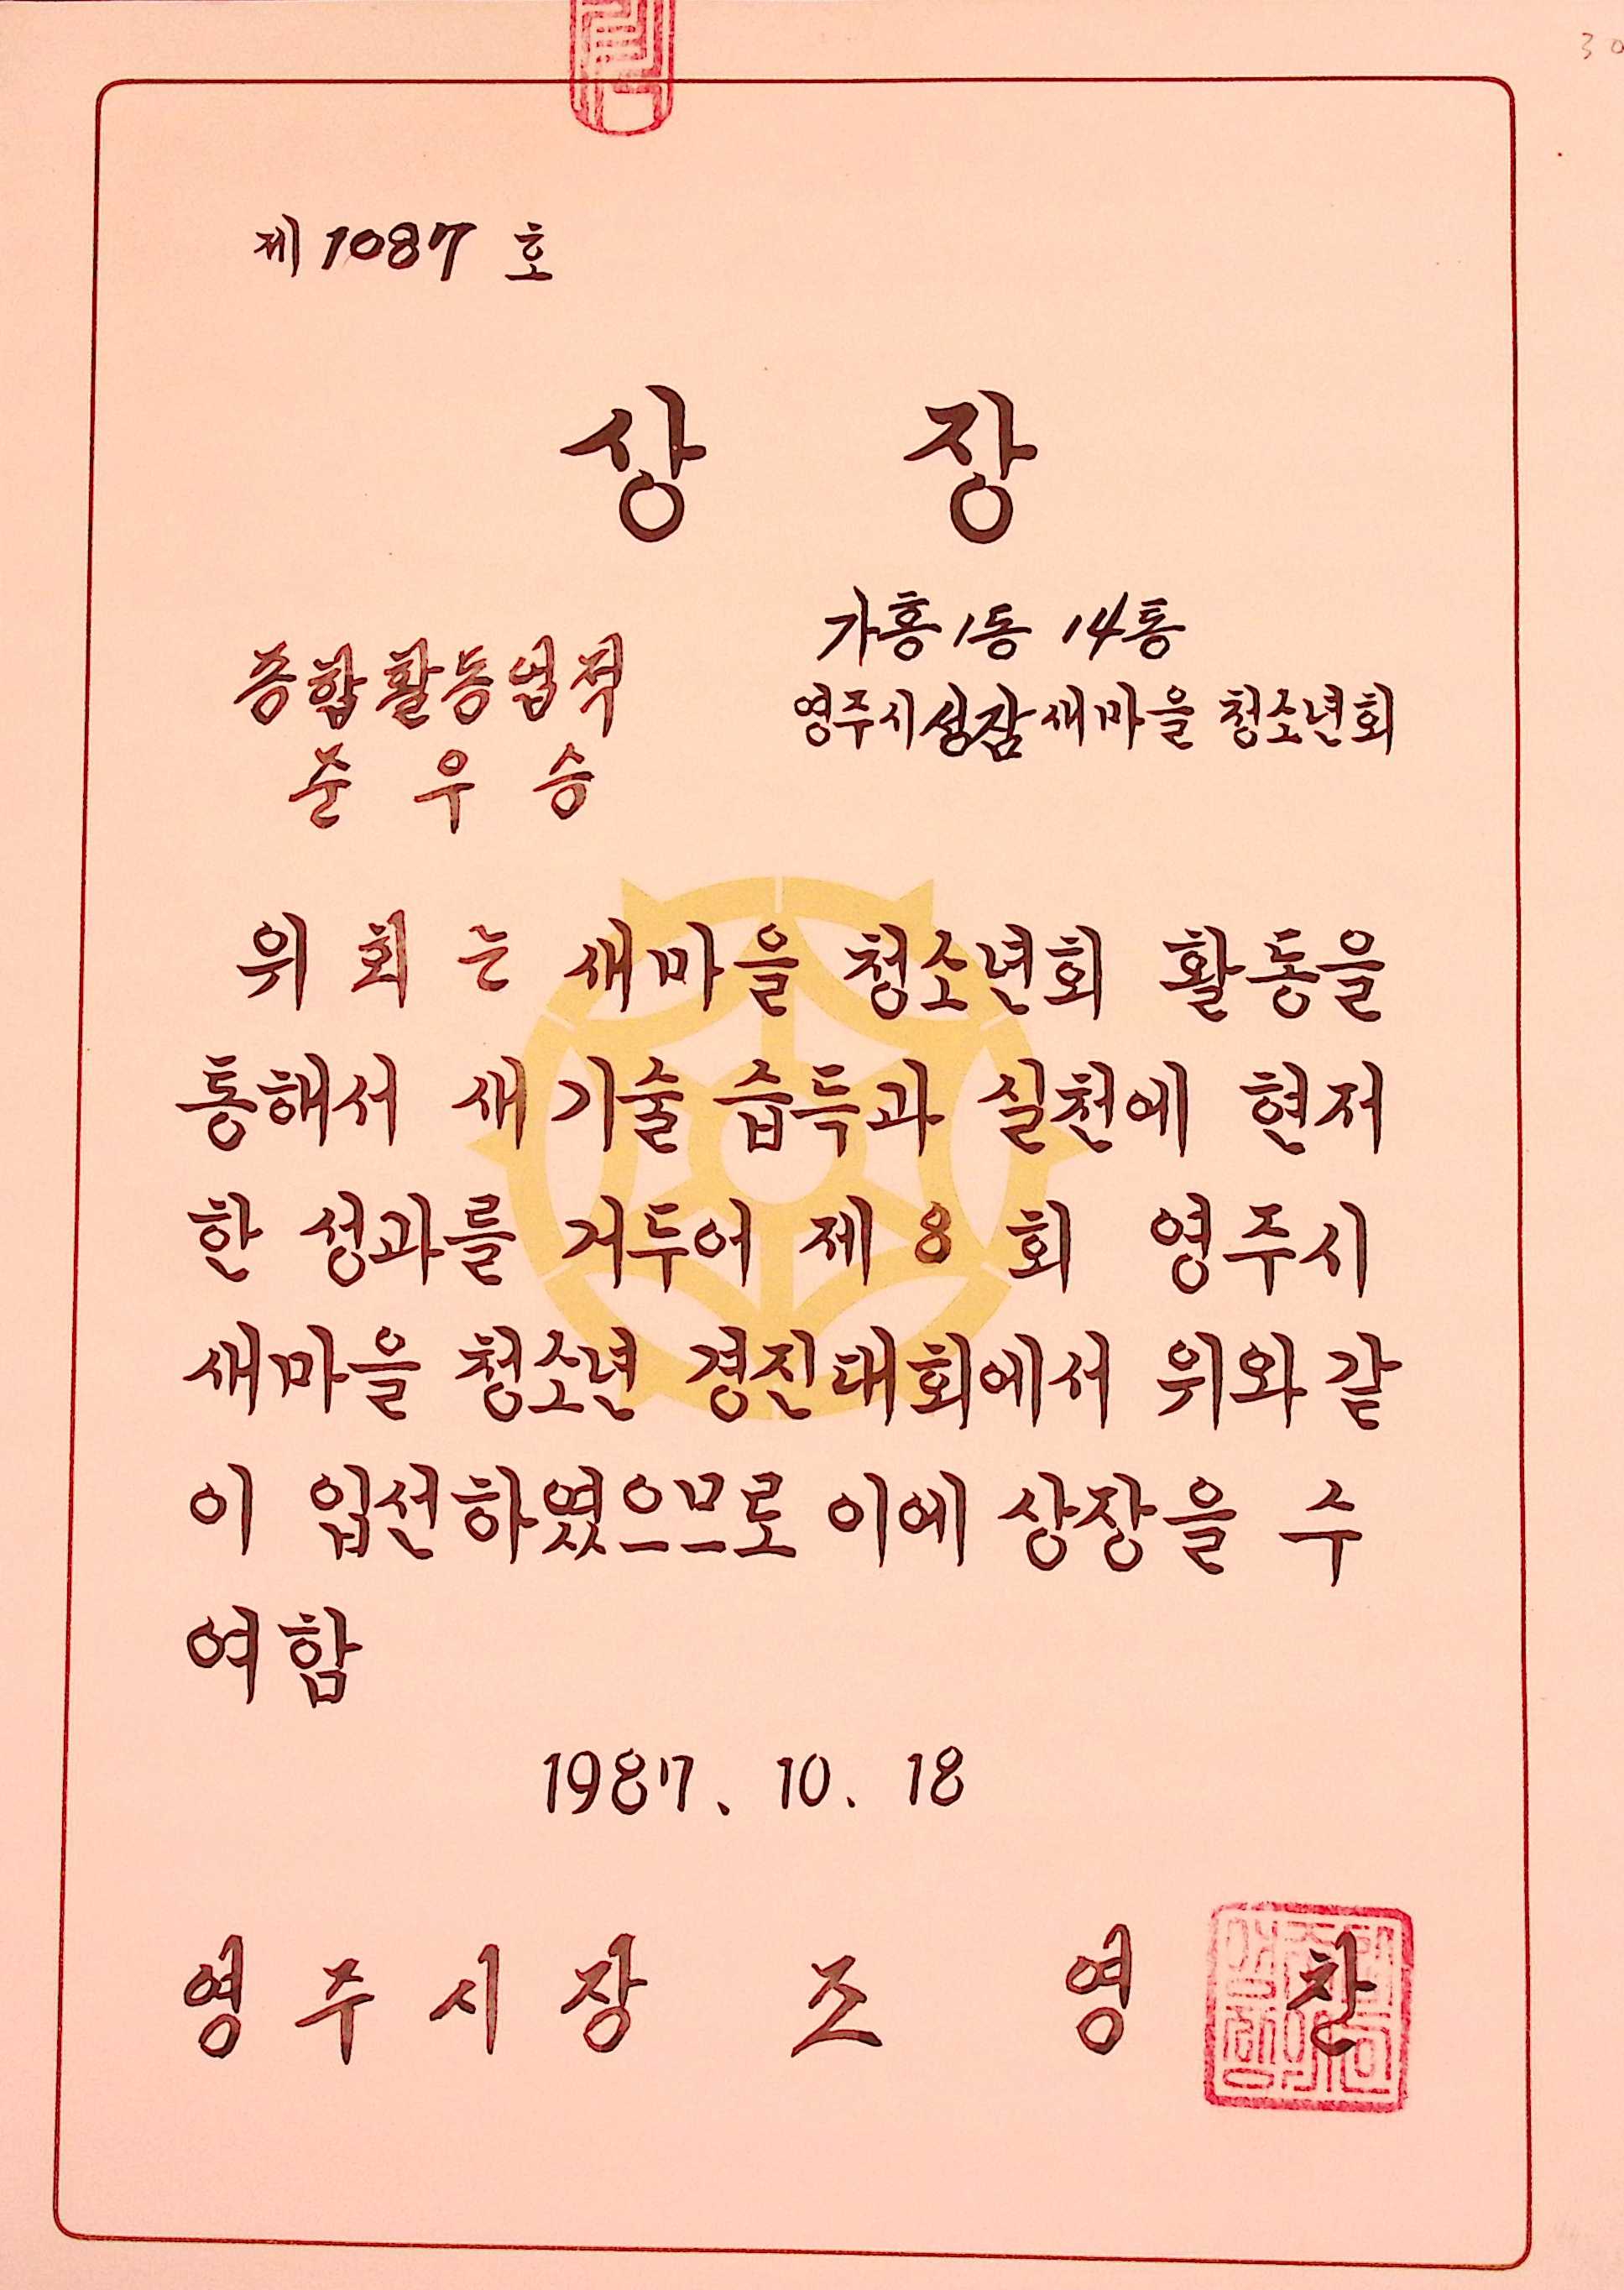 30
제 1087 호
상 장
종합활동업적
준 우 승
가흥1동 14통
영주시성잠새마을 청소년회
위 회 는 새마을 청소년회 활동을
통해서 새기술 습득과 실천에 현저
한 성과를 거두어 제 8 회 영주시
새마을 청소년 경진대회에서 위와 같
이 입선하였으므로 이에 상장을 수
여함
1987. 10. 18
영 주 시 장 조 영 찬